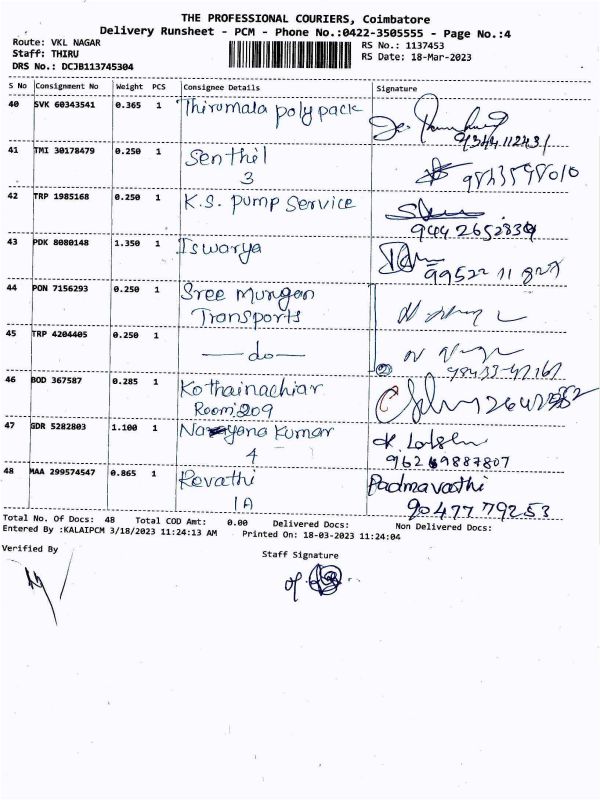 THE PROFESSIONAL COURIERS, Coimbatore
Delivery Runsheet - PCM - Phone No.:0422-3505555 - Page No.:4
Route: VKL NAGAR
RS No.: 1137453
Staff: THIRU
RS Date: 18-Mar-2023
DRS No.: DCJB113745304
S No Consignment No Weight PCS Consignee Details Signature
40 SVK 60343541 0.365 1 Thirumala poly pack
9344112431
41 TMI 30178479 0.250 1 Senthil
3
42 TRP 1985168 0.250 1 K.S. Pump Service
43 PDK 8080148 1.350 1 Iswarya
44 PON 7156293 0.250 1 Sree Murugan
Transports
45 TRP 4204405 0.250 1 — do —
46 BOD 367587 0.285 1 Kothainachiar
Room:209
47 GDR 5282803 1.100 1 Narayana Kumar
4
48 MAA 299574547 0.865 1 Revathi Padmavathi
1A 9047779253
Total No. Of Docs: 48 Total COD Amt: 0.00 Delivered Docs: Non Delivered Docs:
Entered By :KALAIPCM 3/18/2023 11:24:13 AM Printed On: 18-03-2023 11:24:04
Verified By
Staff Signature